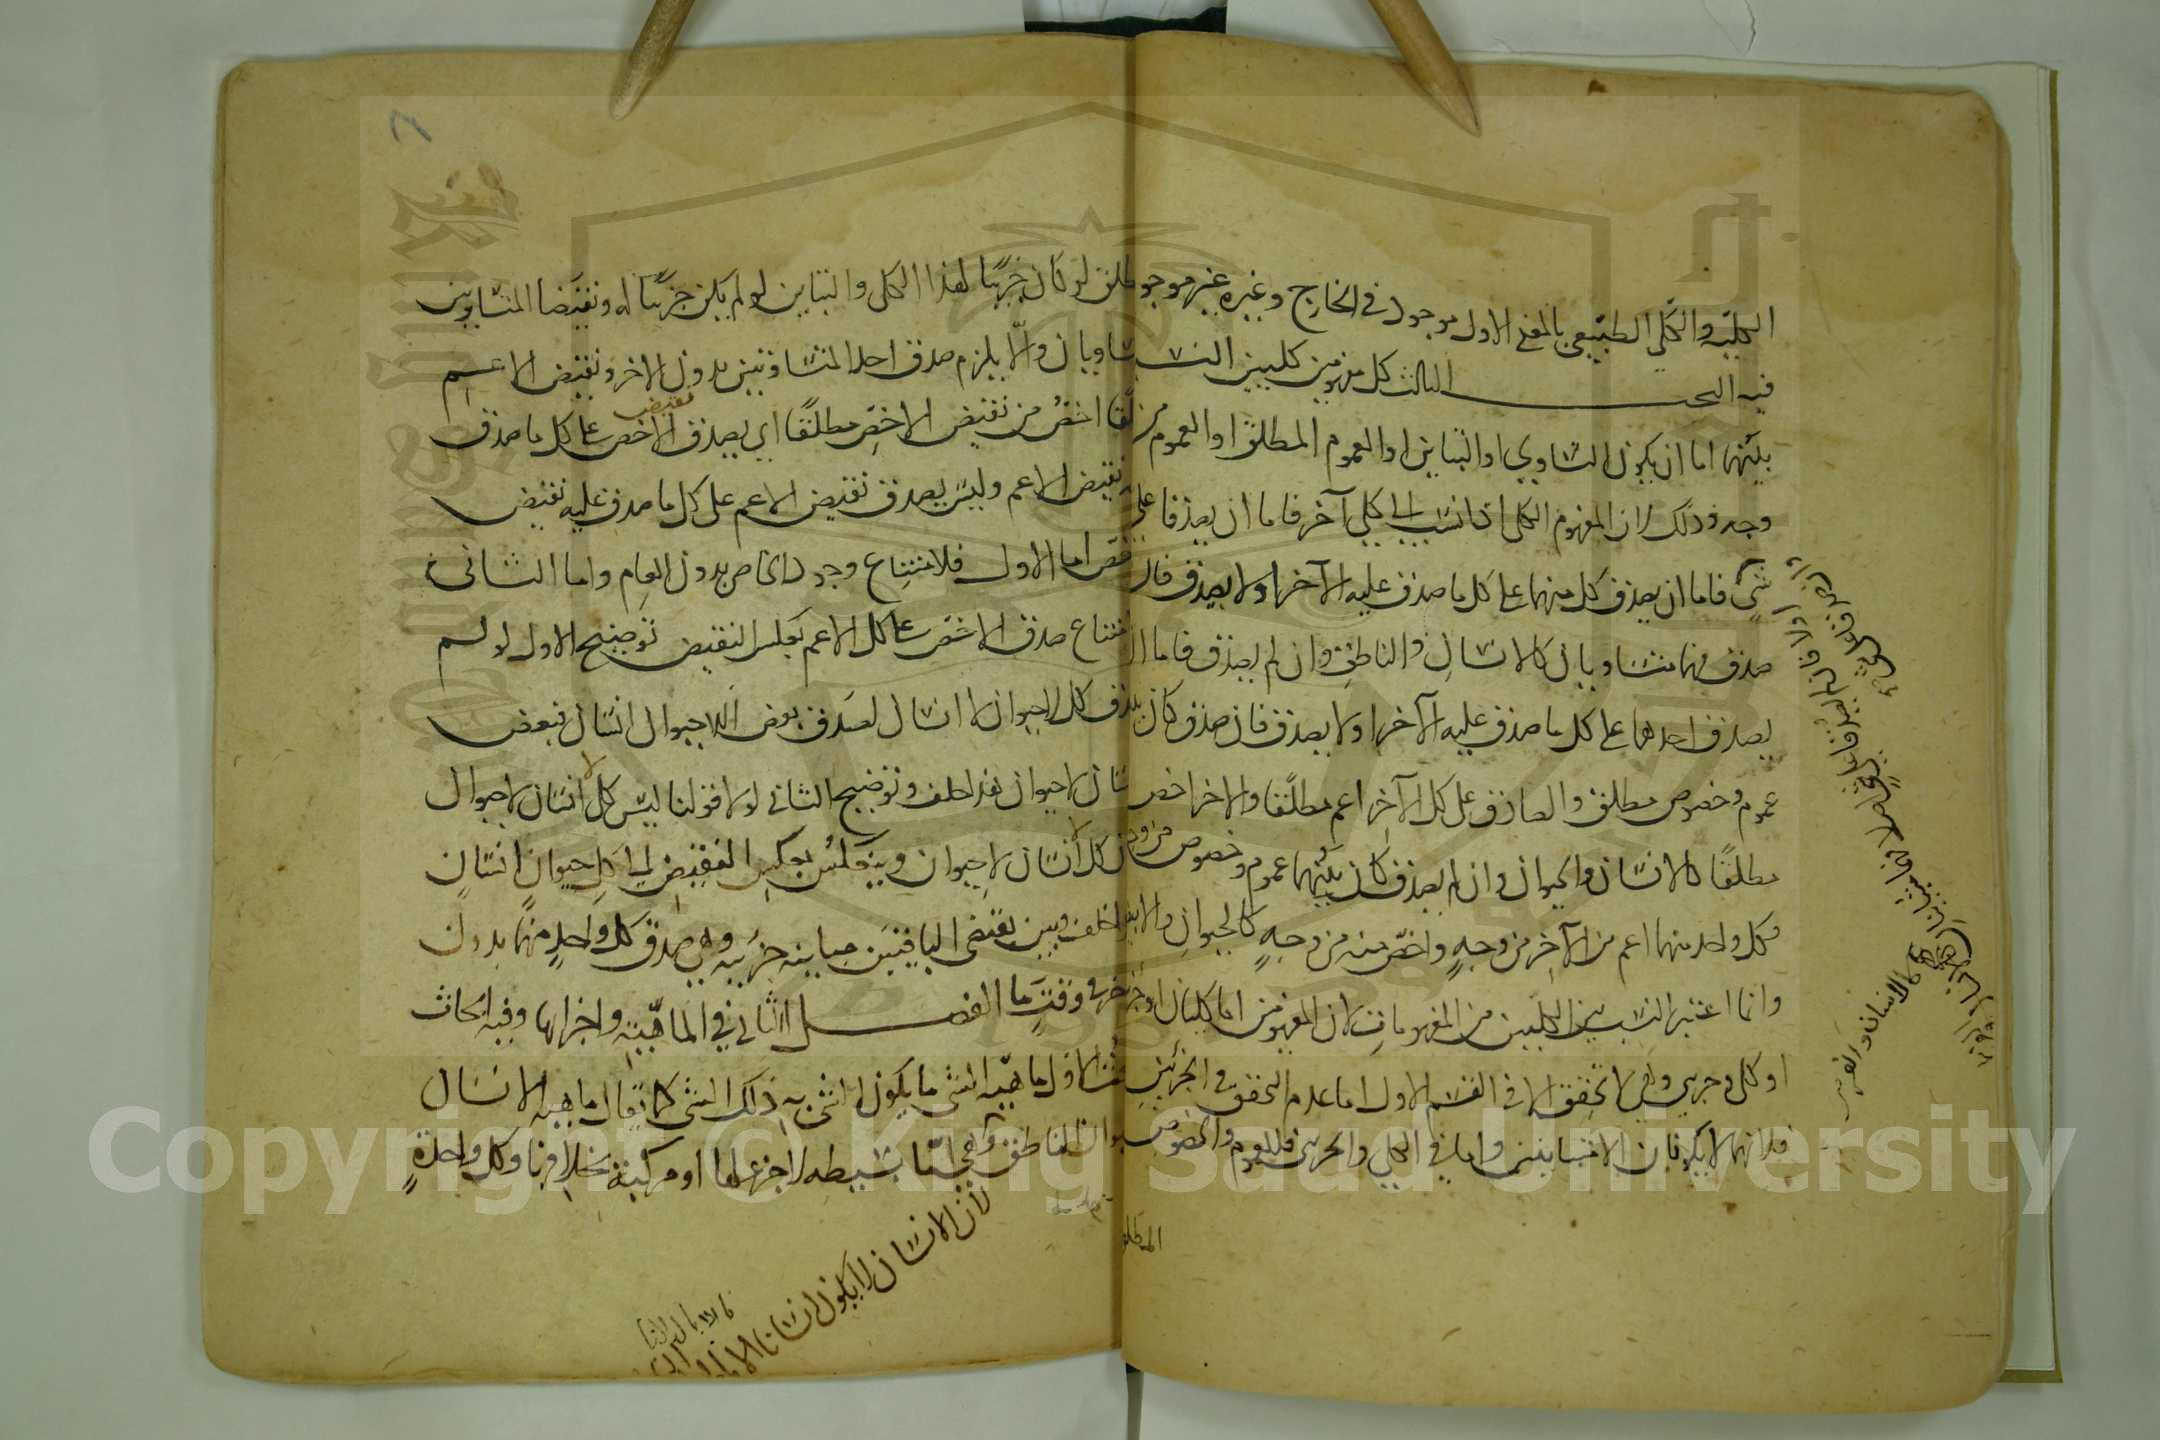 الكلية والكلي الطبيعي بالمعنى الاول موجود في الخارج وغيره غير موجود
فيه البحـــث الثالث كل مفهومين كليين النسب
بينهما اما ان يكون التساوي او التباين او العموم المطلق او العموم من
وجه وذلك لان المفهوم الكلي اذا نسب الى كلي آخر فاما ان يصدقا على
شي فاما ان يصدق كل منهما على كل ما صدق عليه الآخر او لا يصدق فان
صدق فهما متساويان كالانسان والناطق وان لم يصدق فاما ان
يصدق احدهما على كل ما صدق عليه الآخر او لا يصدق فان صدق كان بينهما
عموم وخصوص مطلق والصادق على كل الآخر اعم مطلقا والاخر اخص
مطلقا كالانسان والحيوان وان لم يصدق كان بينهما عموم وخصوص من وجه
فكل واحد منهما اعم من الآخر من وجه واخص منه من وجه كالحيوان والابيض
وانما اعتبر النسب بين الكليين من المفهومات لان المفهومين اما كليان او جزئيان
او كلي وجزئي ولا تتحقق الا في القسم الاول اما عدم التحقق في الجزئين
فلانهما لا يكونان الا متباينين واما في الكلي والجزئي فللعموم والخصوص
المطلق
مطلق لو كان جزئيا لهذا الكلي والتباين لو لم يكن جزئيا له ونقيضا المتساويين
متساويان والا يلزم صدق احد المتساويين بدون الاخر ونقيض الاعـــم
مطلقا اخص من نقيض الاخص مطلقا اي يصدق نقيض الاخص على كل ما صدق
عليه نقيض الاعم وليس يصدق نقيض الاعم على كل ما صدق عليه نقيض
الاخص اما الاول فلامتناع وجود الخاص بدون العام واما الثاني
فلامتناع صدق الاخص على كل الاعم بعكس النقيض توضيح الاول لو لم
يصدق كل لاحيوان لا انسان لصدق بعض اللاحيوان انسان فبعض
الانسان لاحيوان هذا خلف وتوضيح الثاني لولا قولنا ليس كل لا انسان لاحيوان
لكان كل لا انسان لاحيوان وينعكس بعكس النقيض الى كل حيوان انسان
هذا خلف وبين نقيضي الباقيين مباينة جزئية وهي صدق كل واحد منهما بدون
الاخر في وقت ما الفصـــل الثاني في الماهية واجزائها وفيه ابحاث
البحث الاول ماهية الشي ما يكون الشي به ذلك الشي كما يقال ماهية الانسان
الحيوان الناطق وهي اما بسيطة لا جزء لها او مركبة بخلافها وكل واحدة
لان الانسان لا يكون انسانا الا